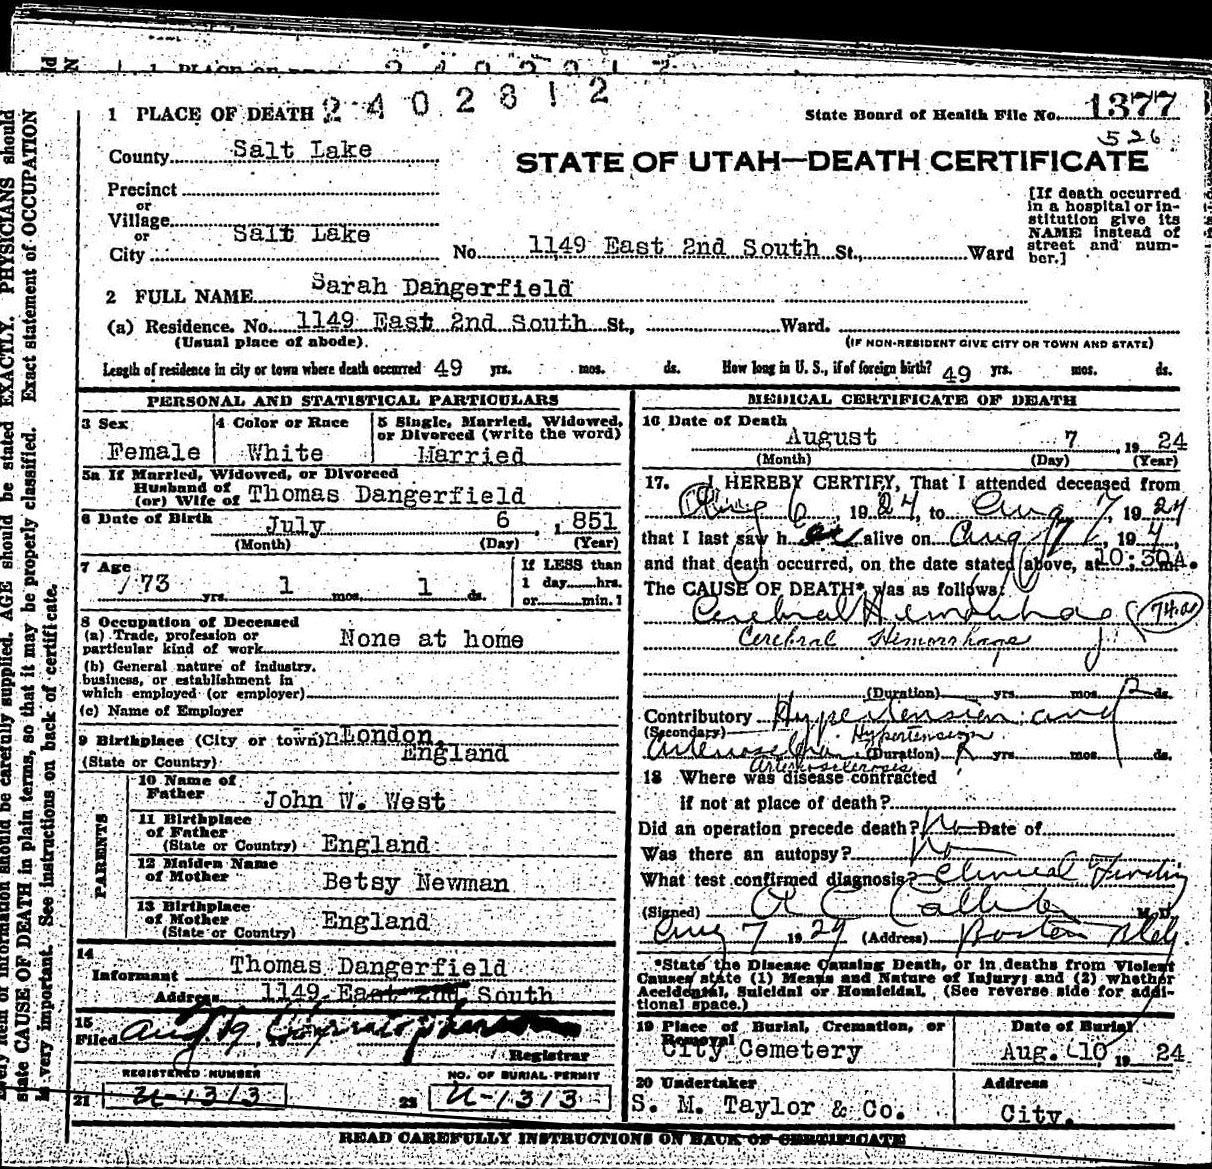 1 PLACE OF DEATH 2402812
State Board of Health File No. 1377
526
County Salt Lake
STATE OF UTAH—DEATH CERTIFICATE
Precinct
or
Village
or
City Salt Lake
No. 1149 East 2nd South St., Ward
[If death occurred
in a hospital or in-
stitution give its
NAME instead of
street and num-
ber.]
2 FULL NAME Sarah Dangerfield
(a) Residence. No. 1149 East 2nd South St., Ward.
(Usual place of abode).
(IF NON-RESIDENT GIVE CITY OR TOWN AND STATE)
Length of residence in city or town where death occurred 49 yrs. mos. ds. How long in U. S., if of foreign birth? 49 yrs. mos. ds.
PERSONAL AND STATISTICAL PARTICULARS
3 Sex
Female
4 Color or Race
White
5 Single, Married, Widowed,
or Divorced (write the word)
Married
5a If Married, Widowed, or Divorced
Husband of
(or) Wife of Thomas Dangerfield
6 Date of Birth July 6, 1851
(Month) (Day) (Year)
7 Age
73 yrs. 1 mos. 1 ds.
If LESS than
1 day......hrs.
or......min.?
8 Occupation of Deceased
(a) Trade, profession or
particular kind of work None at home
(b) General nature of industry,
business, or establishment in
which employed (or employer)
(c) Name of Employer
9 Birthplace (City or town) London,
(State or Country) England
PARENTS
10 Name of
Father John W. West
11 Birthplace
of Father
(State or Country) England
12 Maiden Name
of Mother Betsy Newman
13 Birthplace
of Mother
(State or Country) England
14
Informant Thomas Dangerfield
Address 1149 East 2nd South
15
Filed Aug. 19
Registrar
REGISTERED NUMBER
21 U-1313
NO. OF BURIAL PERMIT
22 U-1313
MEDICAL CERTIFICATE OF DEATH
16 Date of Death
August 7, 1924
(Month) (Day) (Year)
17. I HEREBY CERTIFY, That I attended deceased from
Aug 6, 1924, to Aug 7, 1924
that I last saw her alive on Aug 7, 194,
and that death occurred, on the date stated above, at 10:30A.m.
The CAUSE OF DEATH* was as follows:
Cerebral Hemorrhage 74a
Cerebral Hemorrhage
(Duration) yrs. mos. 2 ds.
Contributory Hypertension and
(Secondary) Hypertension
(Duration) yrs. mos. ds.
Arteriosclerosis
18 Where was disease contracted
if not at place of death?
Did an operation precede death? No Date of
Was there an autopsy? No
What test confirmed diagnosis? Clinical Finding
(Signed) M. D.
Aug 7 1924 (Address) Boston Bldg.
*State the Disease Causing Death, or in deaths from Violent
Causes, state (1) Means and Nature of Injury; and (2) whether
Accidental, Suicidal or Homicidal. (See reverse side for addi-
tional space.)
19 Place of Burial, Cremation, or
Removal
City Cemetery
Date of Burial
Aug. 10, 1924
20 Undertaker
S. M. Taylor & Co.
Address
City.
READ CAREFULLY INSTRUCTIONS ON BACK OF CERTIFICATE
item of information should be carefully supplied. AGE should be stated EXACTLY. PHYSICIANS should
state CAUSE OF DEATH in plain terms, so that it may be properly classified. Exact statement of OCCUPATION
is very important. See instructions on back of certificate.